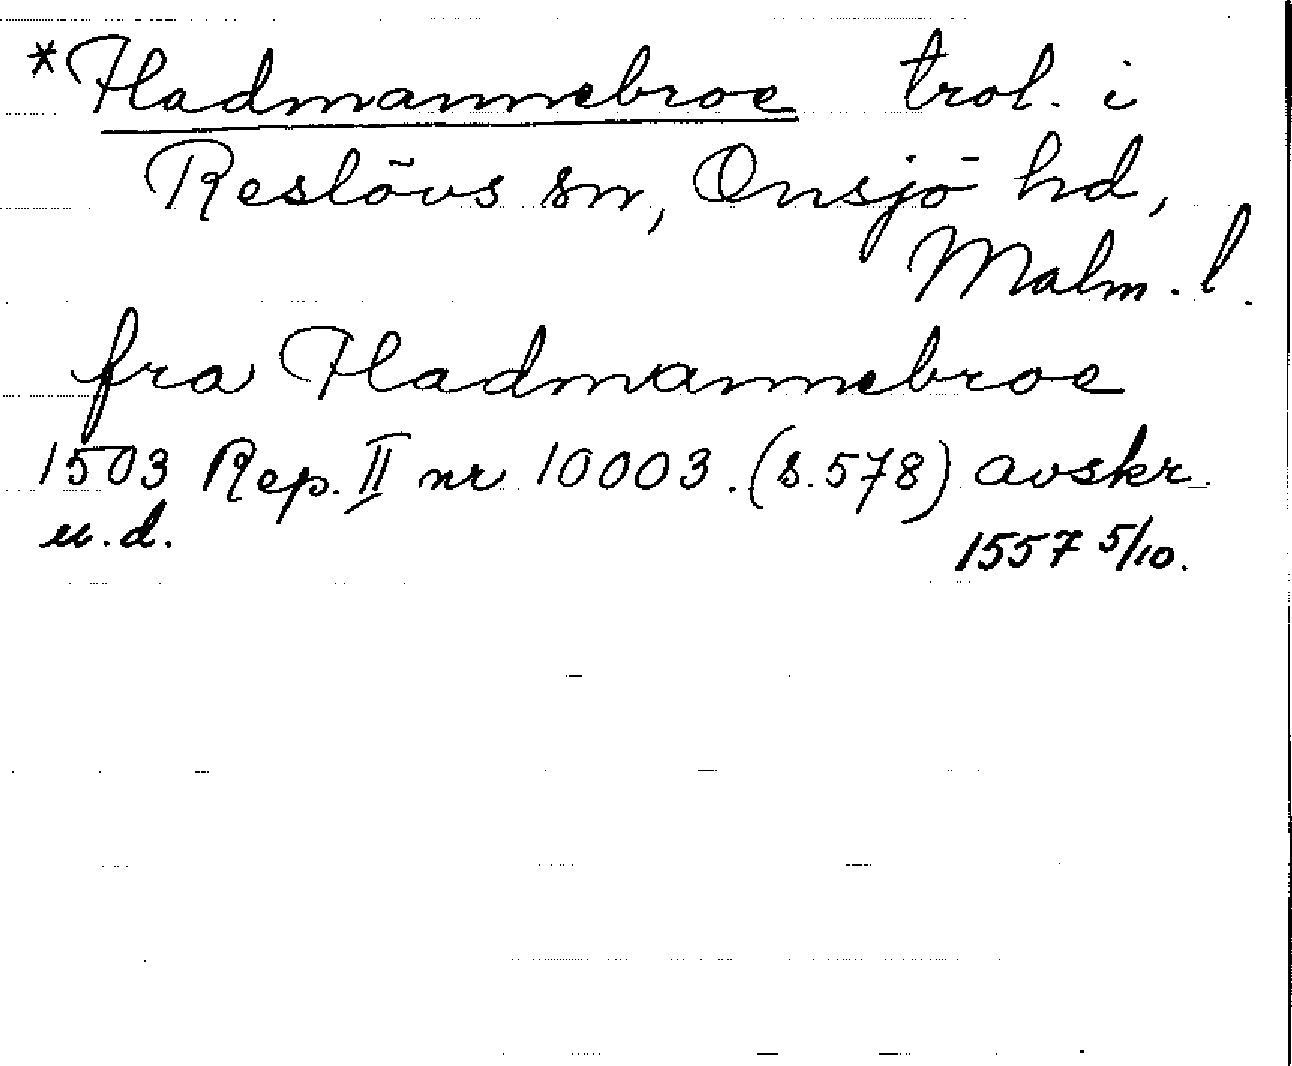 *Hadmannebroe trol. i
Reslövs sn, Onsjö hd,
Malm. l.
fra Hadmannebroe
1503 Rep. II nr 10003. (s. 578) avskr.
u.d. 1557 5/10.